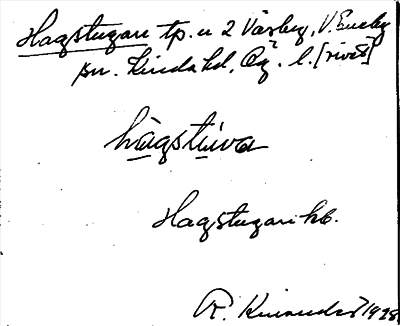 Hagstugan tp. u 2 Väsby, V. Eneby
sn. Kinda hd, Ög. l. [rivet]
hàgstúva
Hagstugan hb.
R. Kinander 1928